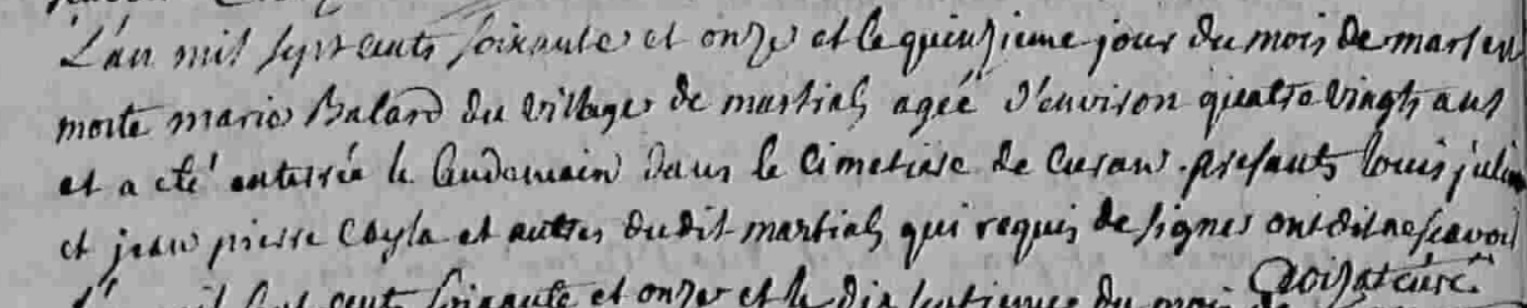 L'an mil sept cents soixante et onze et le quinzieme jour du mois de mars est
morte marie Balard du village de martials agée d'environ quatre vingts ans
et a eté enterrée le lendemain dans le cimetiere de Curan presants louis julie
et jean pierre Cayla et autres dudit martials qui requis de signer ont dit ne scavoir
curé
L'an mil sept cent soixante et onze et le dix septieme du mois